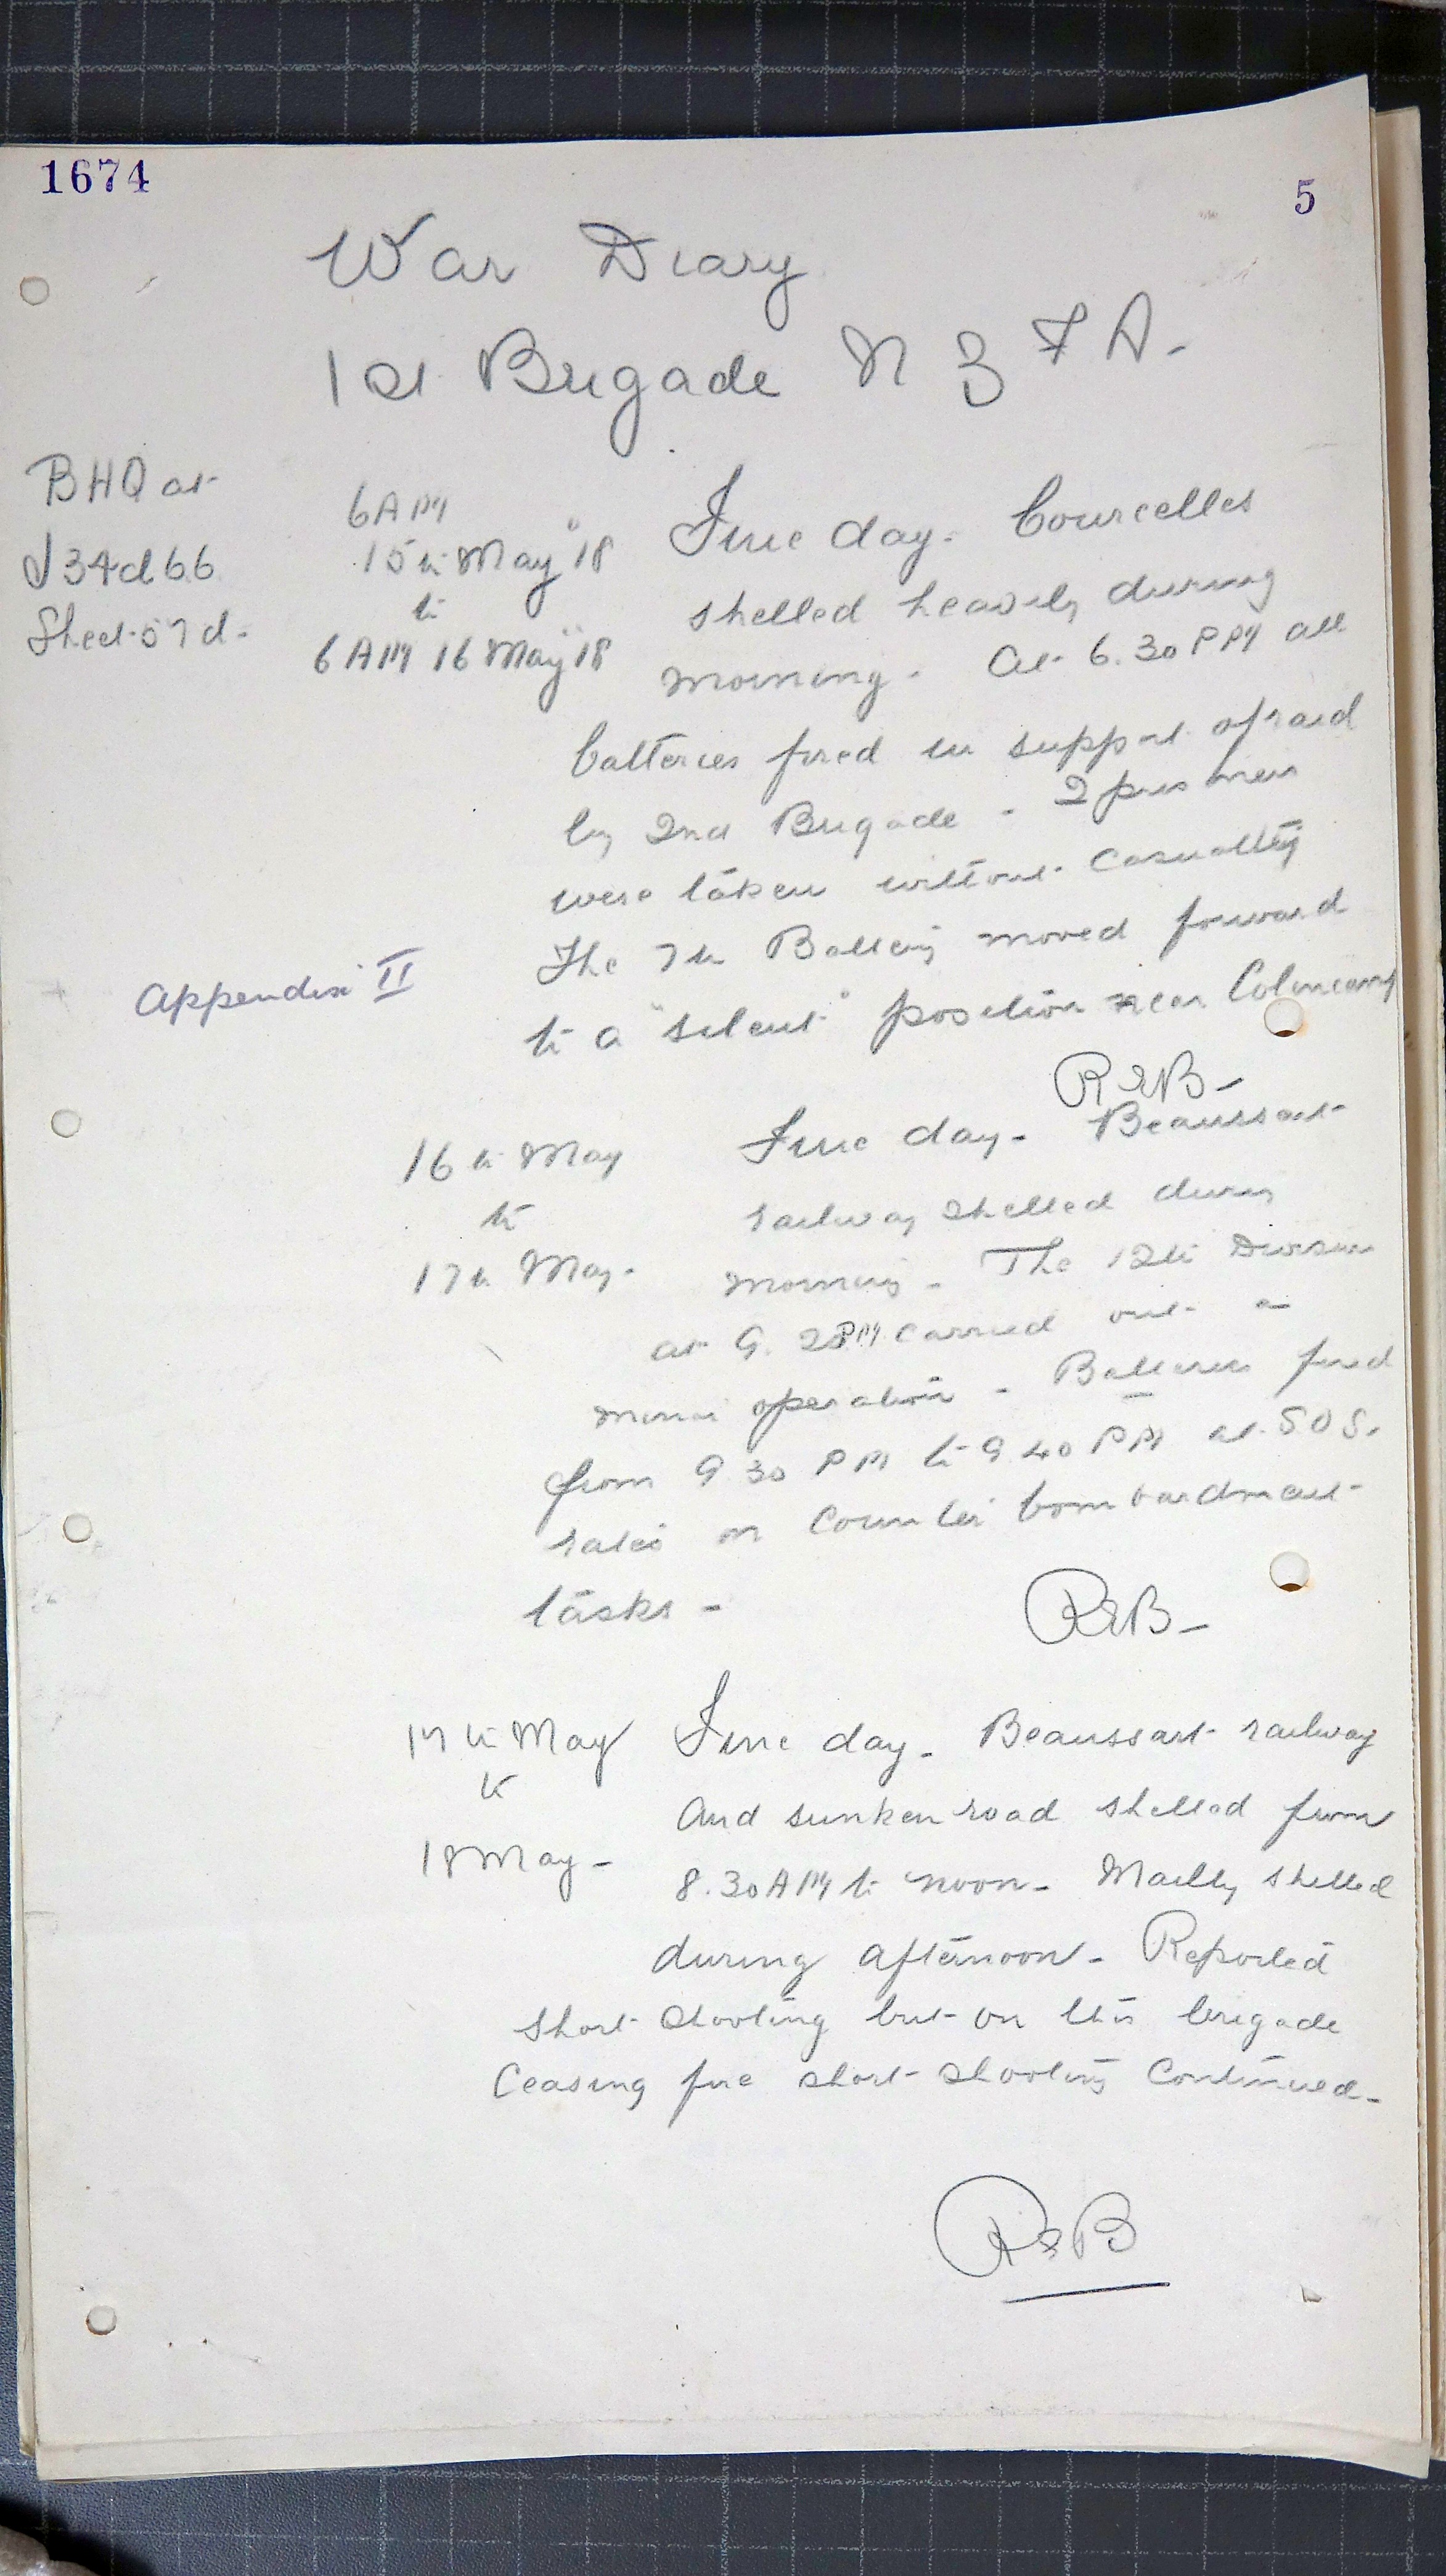 1674
5
War Diary
1st Brigade N Z F A -
BHQ at
J34d66
Sheet 57d -
6AM
15th May "18
to
6AM 16 May "18
Fine day - Courcelles
shelled heavily during
morning - At 6.30 PM all
batteries fired in support of raid
by 2nd Brigade - 2 prisoners
were taken without casualties
Appendix II
The 7th Battery moved forward
to a "silent" position near Colincamp
REB -
16th May
to
17th May -
Fine day - Beaussart
railway shelled during
morning - The 12th Division
at 9. 28PM carried out a
minor operation - Batteries fired
from 9 30 PM to 9 40 PM at SOS.
rates on counter bombardment
tasks -
REB -
17th May
to
18 May -
Fine day - Beaussart railway
and sunken road shelled from
8.30 AM to noon - Mailly shelled
during afternoon - Reported
short shooting but on this brigade
ceasing fire short shooting continued -
REB